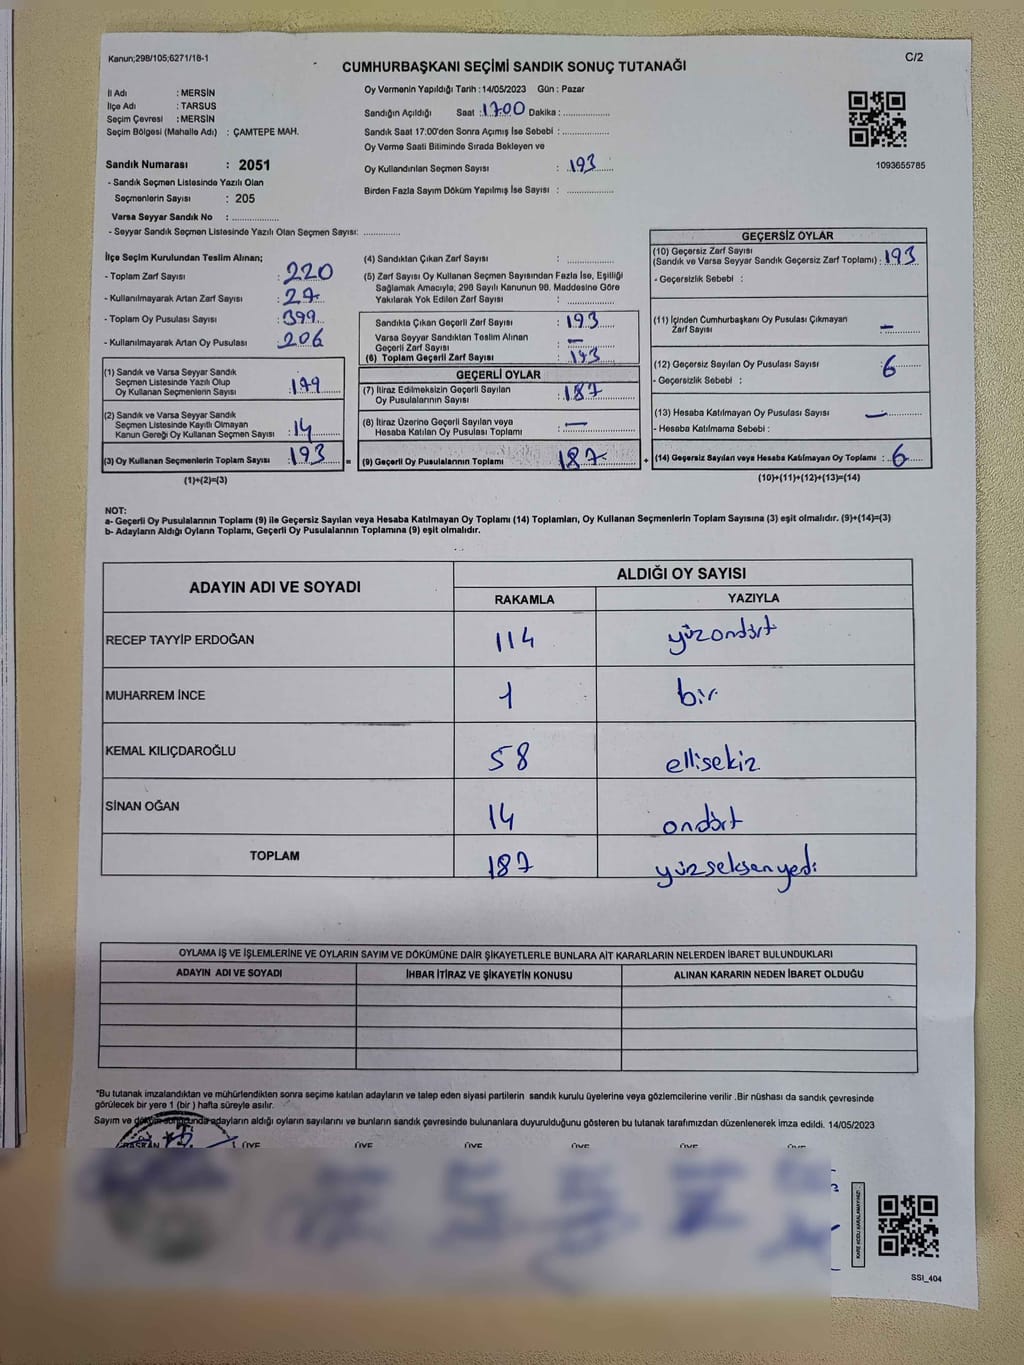 Kanun;298/105;6271/18-1
C/2
CUMHURBAŞKANI SEÇİMİ SANDIK SONUÇ TUTANAĞI
İl Adı : MERSİN
İlçe Adı : TARSUS
Seçim Çevresi : MERSİN
Seçim Bölgesi (Mahalle Adı) : ÇAMTEPE MAH.
Sandık Numarası : 2051
- Sandık Seçmen Listesinde Yazılı Olan
Seçmenlerin Sayısı : 205
Varsa Seyyar Sandık No : ..................
- Seyyar Sandık Seçmen Listesinde Yazılı Olan Seçmen Sayısı: ..............
Oy Vermenin Yapıldığı Tarih : 14/05/2023 Gün : Pazar
Sandığın Açıldığı Saat : 17.00 Dakika : ..................
Sandık Saat 17:00'den Sonra Açımış İse Sebebi : ..................
Oy Verme Saati Bitiminde Sırada Bekleyen ve
Oy Kullandırılan Seçmen Sayısı : 193
Birden Fazla Sayım Döküm Yapılmış İse Sayısı : ..................
1093655785
İlçe Seçim Kurulundan Teslim Alınan;
- Toplam Zarf Sayısı : 220
- Kullanılmayarak Artan Zarf Sayısı : 27
- Toplam Oy Pusulası Sayısı : 399
- Kullanılmayarak Artan Oy Pusulası : 206
(1) Sandık ve Varsa Seyyar Sandık
Seçmen Listesinde Yazılı Olup
Oy Kullanan Seçmenlerin Sayısı : 179
(2) Sandık ve Varsa Seyyar Sandık
Seçmen Listesinde Kayıtlı Olmayan
Kanun Gereği Oy Kullanan Seçmen Sayısı : 14
(3) Oy Kullanan Seçmenlerin Toplam Sayısı : 193 =
(1)+(2)=(3)
(4) Sandıktan Çıkan Zarf Sayısı : ..................
(5) Zarf Sayısı Oy Kullanan Seçmen Sayısından Fazla İse, Eşitliği
Sağlamak Amacıyla, 298 Sayılı Kanunun 98. Maddesine Göre
Yakılarak Yok Edilen Zarf Sayısı : ..................
Sandıkta Çıkan Geçerli Zarf Sayısı : 193
Varsa Seyyar Sandıktan Teslim Alınan
Geçerli Zarf Sayısı : —
(6) Toplam Geçerli Zarf Sayısı : 193
GEÇERLİ OYLAR
(7) İtiraz Edilmeksizin Geçerli Sayılan
Oy Pusulalarının Sayısı : 187
(8) İtiraz Üzerine Geçerli Sayılan veya
Hesaba Katılan Oy Pusulası Toplamı : —
(9) Geçerli Oy Pusulalarının Toplamı 187 +
GEÇERSİZ OYLAR
(10) Geçersiz Zarf Sayısı
(Sandık ve Varsa Seyyar Sandık Geçersiz Zarf Toplamı) : 193
- Geçersizlik Sebebi :
(11) İçinden Cumhurbaşkanı Oy Pusulası Çıkmayan
Zarf Sayısı : —
(12) Geçersiz Sayılan Oy Pusulası Sayısı : 6
- Geçersizlik Sebebi :
(13) Hesaba Katılmayan Oy Pusulası Sayısı : —
- Hesaba Katılmama Sebebi :
(14) Geçersiz Sayılan veya Hesaba Katılmayan Oy Toplamı : 6
(10)+(11)+(12)+(13)=(14)
NOT:
a- Geçerli Oy Pusulalarının Toplamı (9) ile Geçersiz Sayılan veya Hesaba Katılmayan Oy Toplamı (14) Toplamları, Oy Kullanan Seçmenlerin Toplam Sayısına (3) eşit olmalıdır. (9)+(14)=(3)
b- Adayların Aldığı Oyların Toplamı, Geçerli Oy Pusulalarının Toplamına (9) eşit olmalıdır.
ADAYIN ADI VE SOYADI ALDIĞI OY SAYISI
RAKAMLA YAZIYLA
RECEP TAYYİP ERDOĞAN 114 yüzondört
MUHARREM İNCE 1 bir
KEMAL KILIÇDAROĞLU 58 ellisekiz
SİNAN OĞAN 14 ondört
TOPLAM 187 yüzseksenyedi
OYLAMA İŞ VE İŞLEMLERİNE VE OYLARIN SAYIM VE DÖKÜMÜNE DAİR ŞİKAYETLERLE BUNLARA AİT KARARLARIN NELERDEN İBARET BULUNDUKLARI
ADAYIN ADI VE SOYADI İHBAR İTİRAZ VE ŞİKAYETİN KONUSU ALINAN KARARIN NEDEN İBARET OLDUĞU
*Bu tutanak imzalandıktan ve mühürlendikten sonra seçime katılan adayların ve talep eden siyasi partilerin sandık kurulu üyelerine veya gözlemcilerine verilir .Bir nüshası da sandık çevresinde
görülecek bir yere 1 (bir ) hafta süreyle asılır.
Sayım ve döküm sonucunda adayların aldığı oyların sayılarını ve bunların sandık çevresinde bulunanlara duyurulduğunu gösteren bu tutanak tarafımızdan düzenlenerek imza edildi. 14/05/2023
BAŞKAN ÜYE ÜYE ÜYE ÜYE ÜYE ÜYE
SSI_404